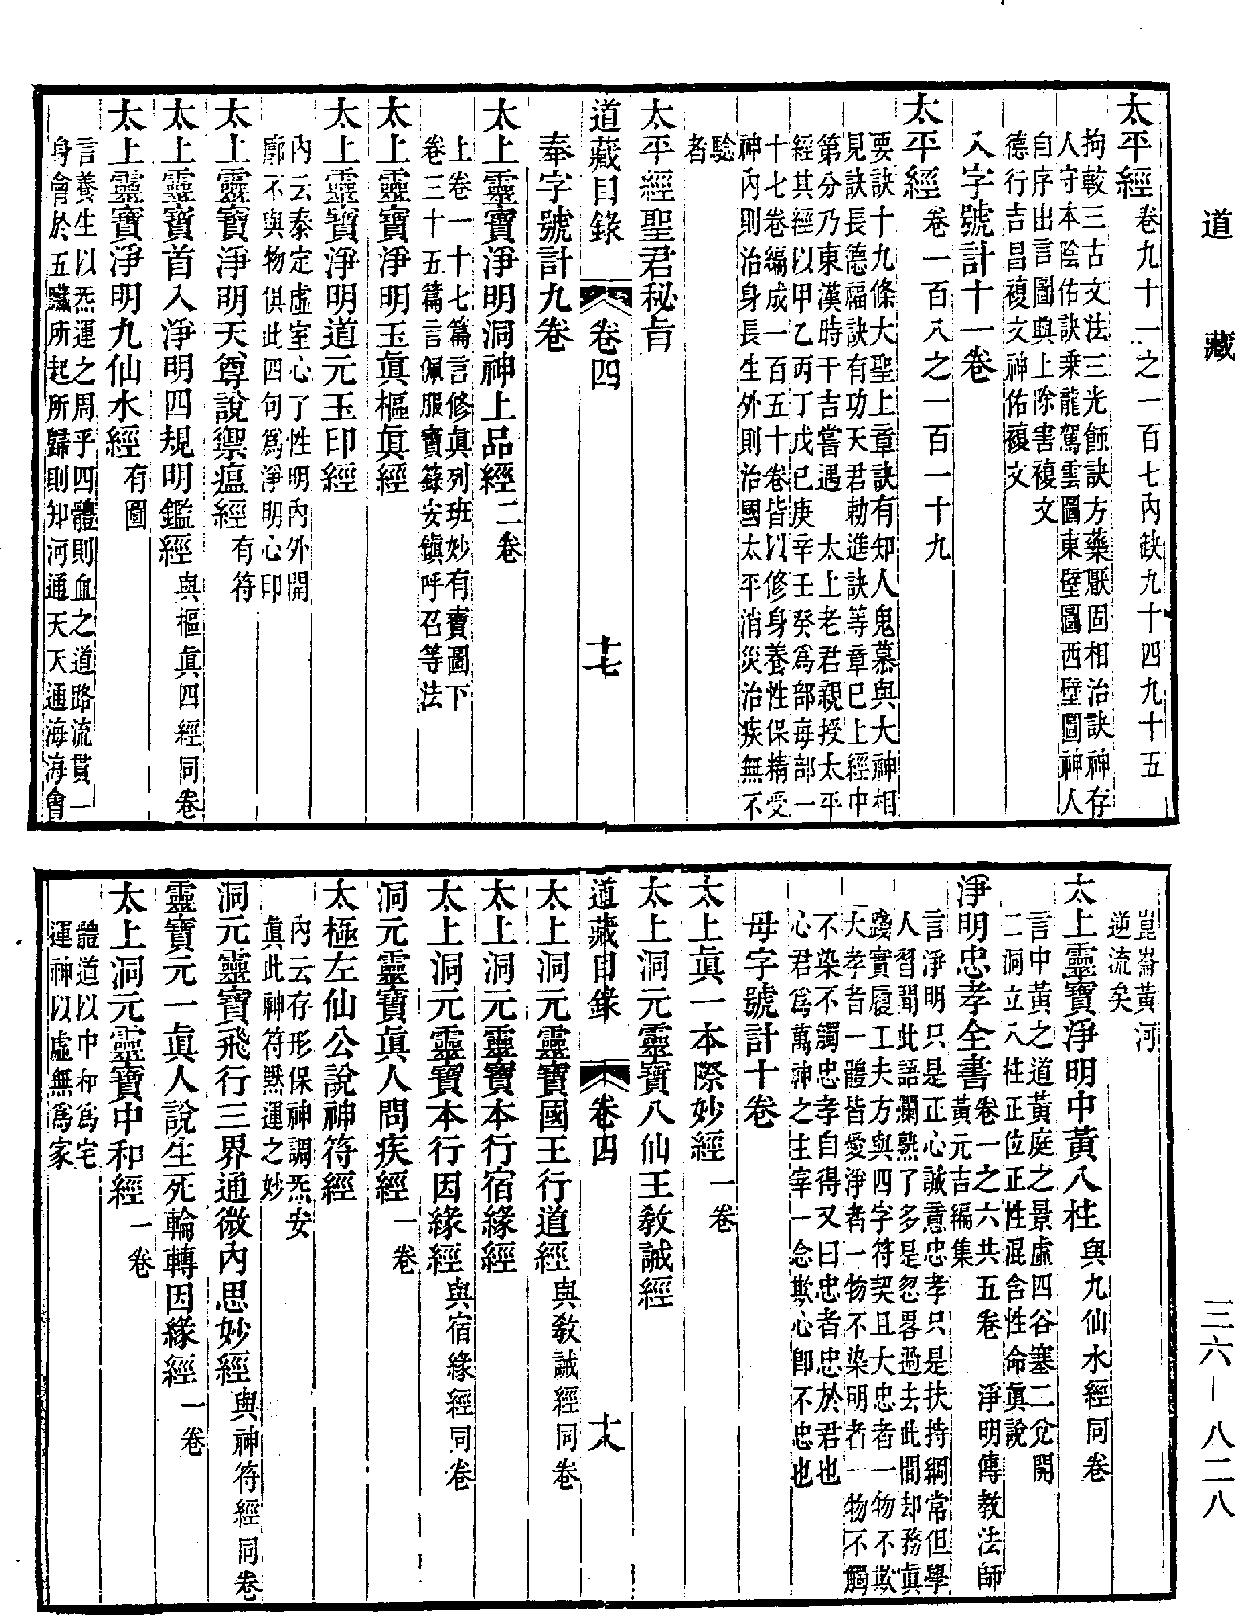 道藏
三六—八二八
太平經卷九十一之一百七內缺九十四九十五
拘較三古文法三光蝕訣方藥厭固相治訣神存
人守本陰佑訣乘龍駕雲圖東壁圖西壁圖神人
自序出言圖與上除害複文
德行吉昌複文神佑複文
入字號計十一卷
太平經卷一百八之一百一十九
要訣十九條大聖上章訣有知人鬼慕與大神相
見訣長德福訣有功天君勅進訣等章已上經中
第分乃東漢時干吉嘗遇　太上老君親授太平
經其經以甲乙丙丁戊己庚辛壬癸爲部每部一
十七卷編成一百五十卷皆以修身養性保精受
神內則治身長生外則治國太平消災治疾無不
驗
者
太平經聖君秘旨
道藏目錄　卷四　十七
奉字號計九卷
太上靈寶淨明洞神上品經二卷
上卷一十七篇言修眞列班妙有寶圖下
卷三十五篇言佩服寶籙安鎭呼召等法
太上靈寶淨明玉眞樞眞經
太上靈寶淨明道元玉印經
內云泰定虛室心了性明內外開
廓不與物俱此四句爲淨明心印
太上靈寶淨明天尊說禦瘟經有符
太上靈寶首入淨明四規明鑑經與樞眞四經同卷
太上靈寶淨明九仙水經有圖
言養生以炁運之周乎四體則血之道路流貫一
身會於五臟所起所歸則知河通天天通海海會
崑崙黃河
逆流矣
太上靈寶淨明中黃八柱與九仙水經同卷
言中黃之道黃庭之景虛四谷塞二兌開
二洞立八柱正位正性混合性命眞說
淨明忠孝全書卷一之六共五卷　淨明傳教法師
黃元吉編集
言淨明只是正心誠意忠孝只是扶持綱常但學
人習聞此語爛熟了多是忽畧過去此間却務眞
踐實履工夫方與四字符契且大忠者一物不欺
大孝者一體皆愛淨者一物不染明者一物不觸
不染不觸忠孝自得又曰忠者忠於君也
心君爲萬神之主宰一念欺心卽不忠也
母字號計十卷
太上眞一本際妙經一卷
太上洞元靈寶八仙王教誡經
道藏目錄　卷四　十八
太上洞元靈寶國王行道經與教誡經同卷
太上洞元靈寶本行宿緣經
太上洞元靈寶本行因緣經與宿緣經同卷
洞元靈寶眞人問疾經一卷
太極左仙公說神符經
內云存形保神調炁安
眞此神符默運之妙
洞元靈寶飛行三界通微內思妙經與神符經同卷
靈寶元一眞人說生死輪轉因緣經一卷
太上洞元靈寶中和經一卷
體道以中和爲宅
運神以虛無爲家